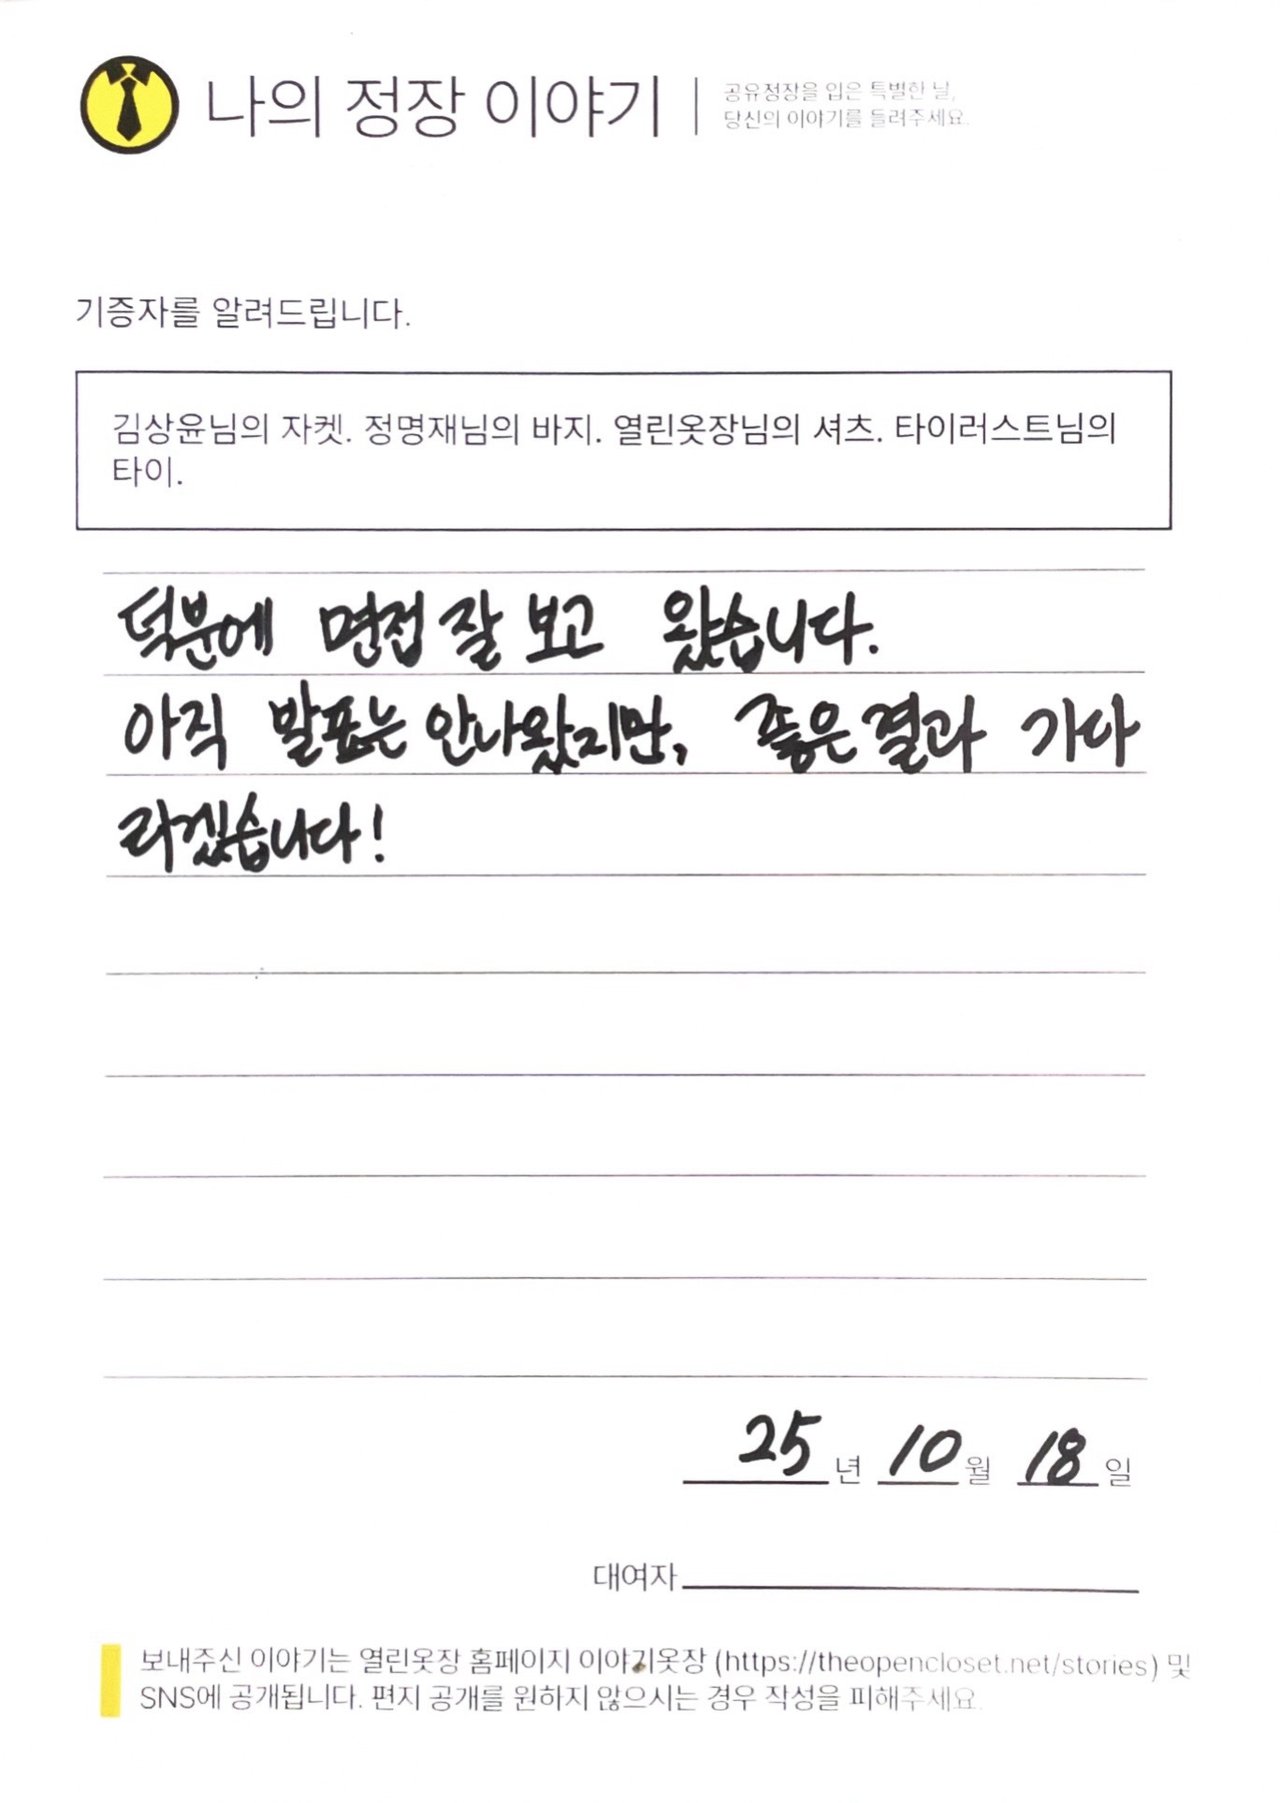 나의 정장 이야기
공유정장을 입은 특별한 날,
당신의 이야기를 들려주세요.
기증자를 알려드립니다.
김상윤님의 자켓. 정명재님의 바지. 열린옷장님의 셔츠. 타이러스트님의
타이.
덕분에 면접 잘 보고 왔습니다.
아직 발표는 안나왔지만, 좋은 결과 기다
리겠습니다!
25년 10월 18일
대여자
보내주신 이야기는 열린옷장 홈페이지 이야기옷장 (https://theopencloset.net/stories) 및
SNS에 공개됩니다. 편지 공개를 원하지 않으시는 경우 작성을 피해주세요.